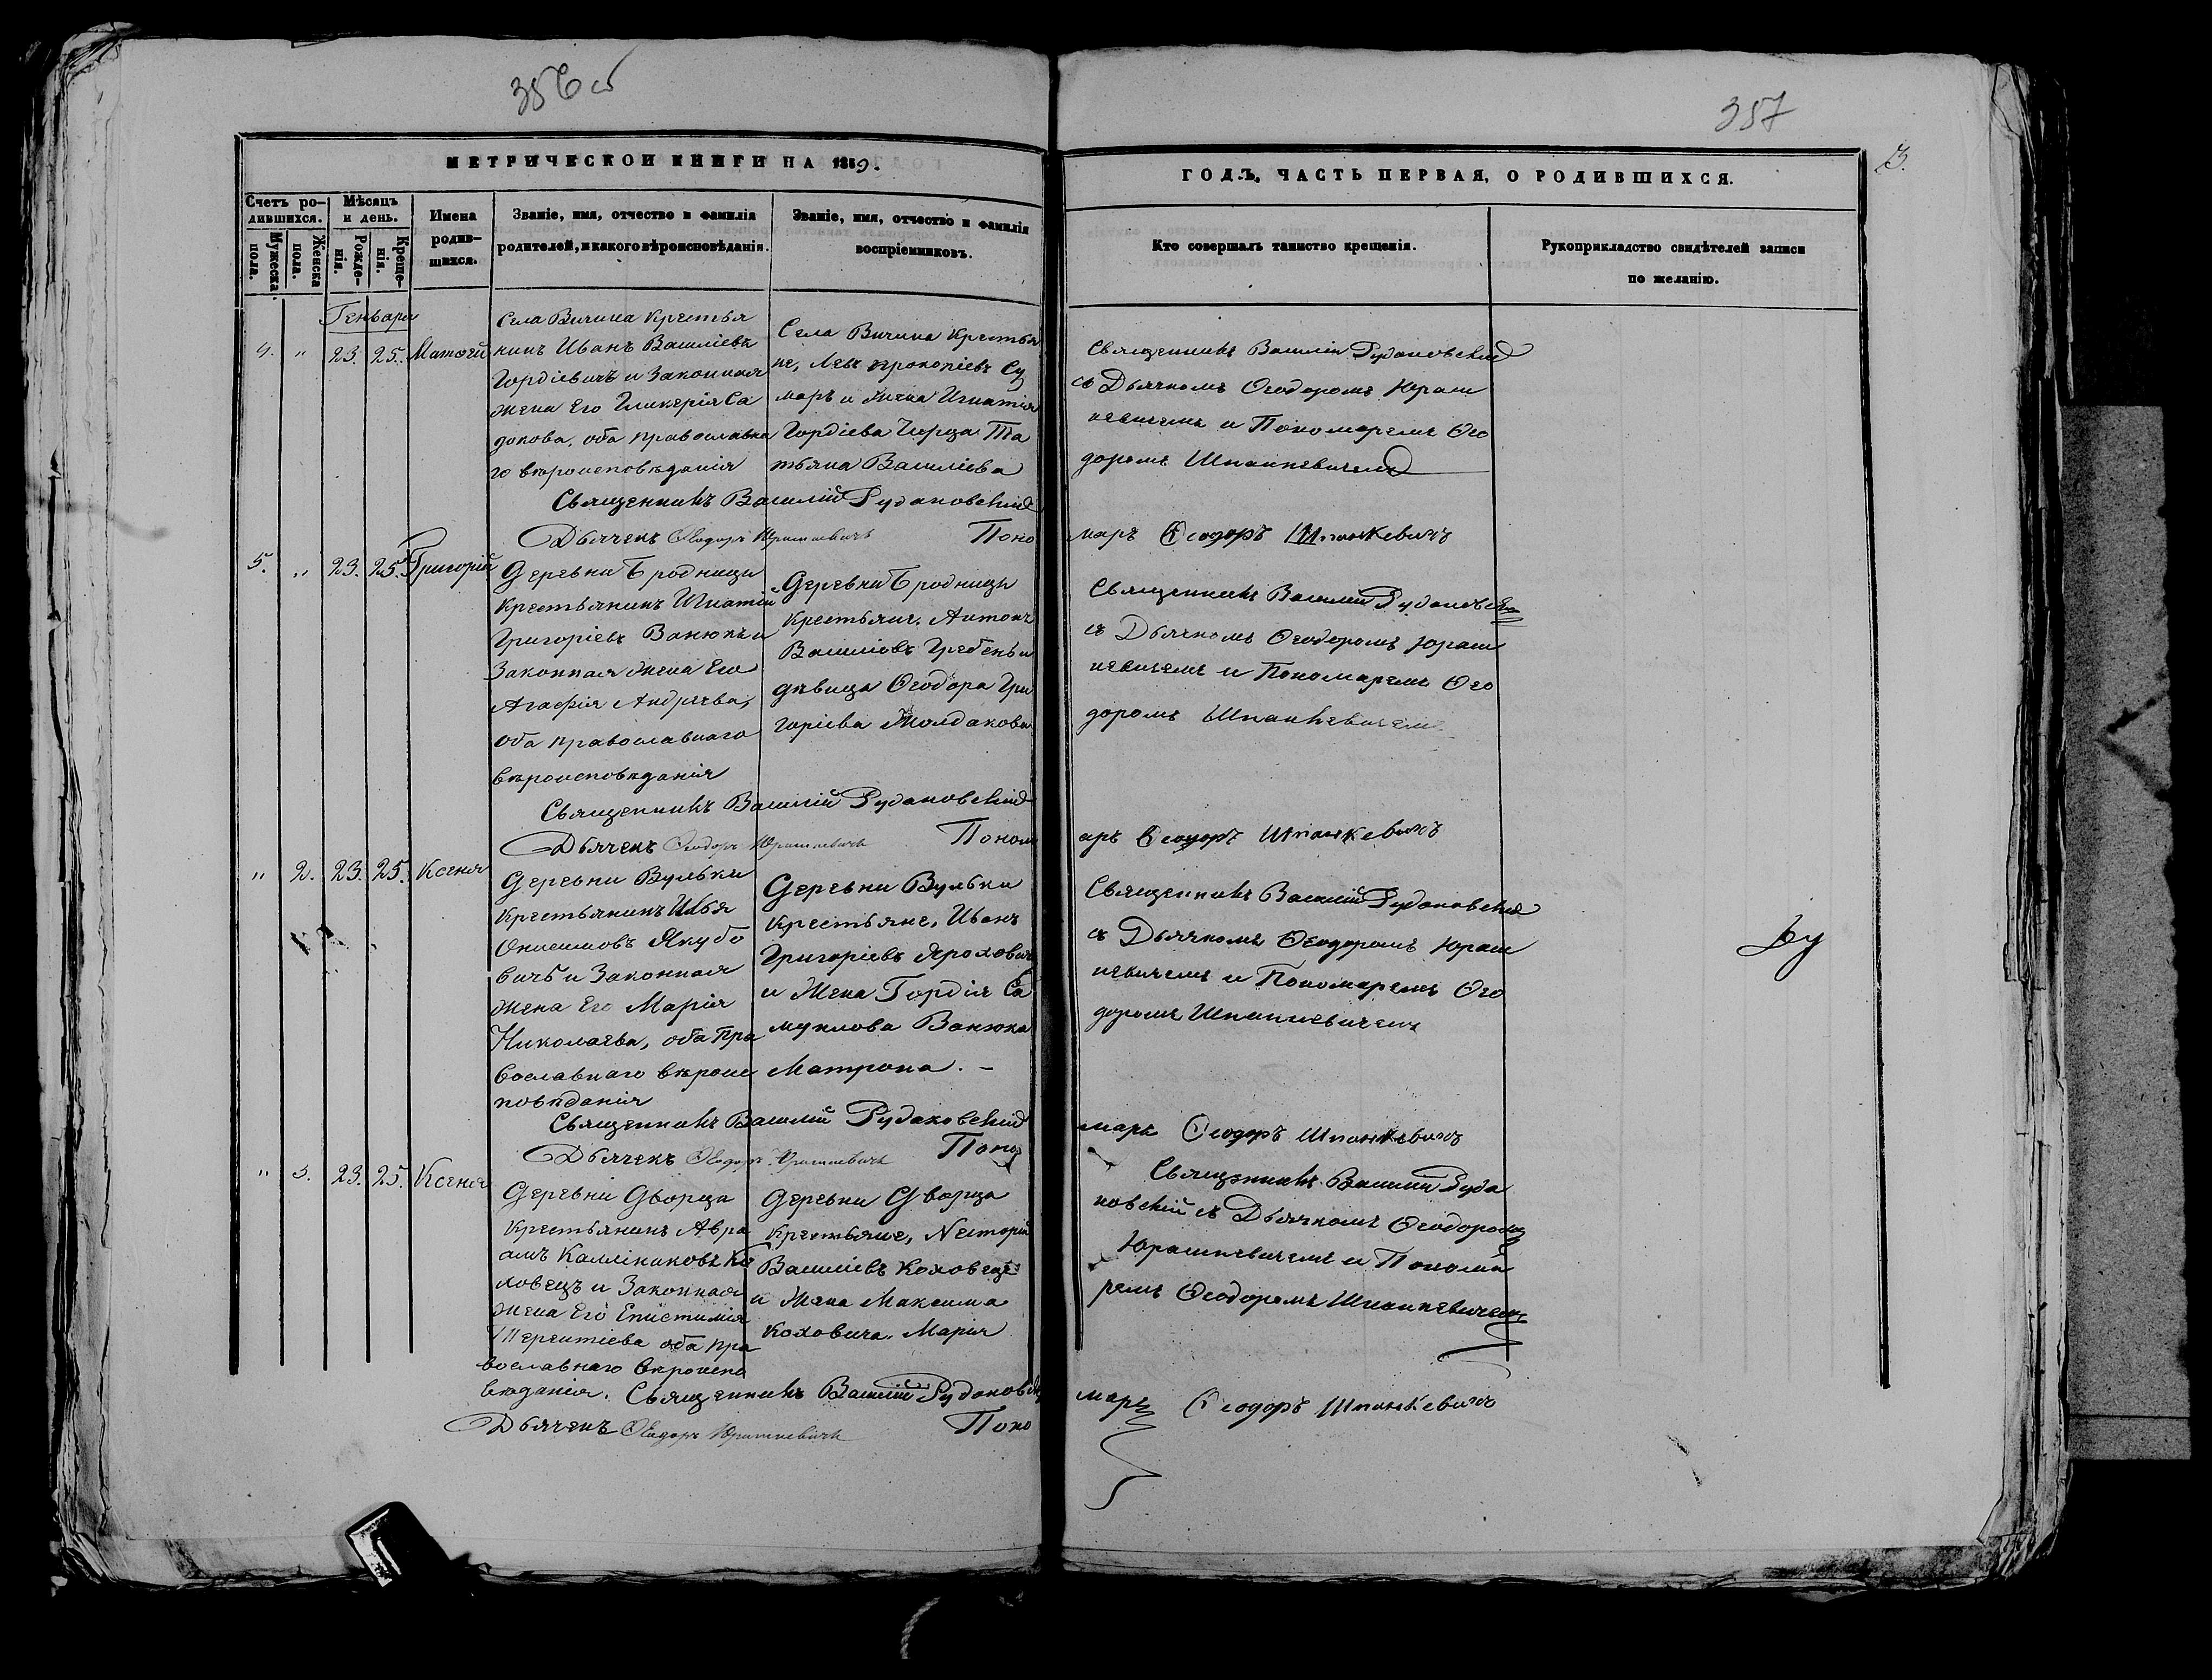 356 об
357
3.
МЕТРИЧЕСКОЙ КНИГИ НА 1859.
ГОДЪ, ЧАСТЬ ПЕРВАЯ, О РОДИВШИХСЯ.
Счетъ ро-
дившихся.
Мужеска
пола.
Женска
пола.
Мѣсяцъ
и день.
Рожде-
нія.
Креще-
нія.
Имена
родив-
шихся.
Званіе, имя, отчество и фамилія
родителей, и какого вѣроисповѣданія.
Званіе, имя, отчество и фамилія
воспріемниковъ.
Кто совершалъ таинство крещенія.
Рукоприкладство свидѣтелей записи
по желанію.
Генваря
4. " 23. 25. Матѳей
Села Вичина Крестья
нинъ Иванъ Василіевъ
Гордіевичъ и Законная
жена Его Гликерія Са
, оба православна
го вѣроисповѣданія
Села Вичина Крестья
не, Левъ Прокопіевъ Су
маръ и Жена Игнатія
Гордіева Та
тьяна Василіева
Священникъ Василій Рудаковскій
съ Дьячкомъ Ѳеодоромъ Юраш
кевичемъ и Пономаремъ Ѳео
доромъ Шпанкевичемъ
Священникъ Василій Рудаковскій
Дьячекъ Ѳеодоръ Юрашкевичъ Поно
маръ Ѳеодоръ Шпанкевичъ
5. " 23. 25. Григорій
Деревни Бродницы
Крестьянинъ Игнатій
Григоріевъ Ванюкъ и
Законная жена Его
Агафія Андреева,
оба православнаго
вѣроисповѣданія
Деревни Бродницы
Крестьяне, Антонъ
Василіевъ Гребень и
дѣвица Ѳеодора Гри
горіева Молдакова
Священникъ Василій Рудаковскій
съ Дьячкомъ Ѳеодоромъ Юраш
кевичемъ и Пономаремъ Ѳео
доромъ Шпанкевичемъ
Священникъ Василій Рудаковскій
Дьячекъ Ѳеодоръ Юрашкевичъ Поном
аръ Ѳеодоръ Шпанкевичъ
" 2. 23. 25. Ксенія
Деревни Вульки
Крестьянинъ Илья
Онисимовъ Якубо
вичъ и Законная
жена Его Марія
Николаева, оба пра
вославнаго вѣроис
повѣданія
Деревни Вульки
Крестьяне, Иванъ
Григоріевъ Ярохович
и Жена Гордія Са
муилова Ванюка
Матрона. –
Священникъ Василій Рудаковскій
съ Дьячкомъ Ѳеодоромъ Юраш
кевичемъ и Пономаремъ Ѳео
доромъ Шпанкевичемъ
Священникъ Василій Рудаковскій
Дьячекъ Ѳеодоръ Юрашкевичъ Поно
маръ Ѳеодоръ Шпанкевичъ
" 3. 23. 25. Ксенія
Деревни Дворца
Крестьянинъ Авра
амъ Каллиниковъ Ко
ховецъ и Законная
жена Его Епистимія
Терентіева оба пра
вославнаго вѣроиспо
вѣданія.
Деревни Дворца
Крестьяне, Несторій
Василіевъ Коховецъ
и Жена Максима
Коховича, Марія
Священникъ Василій Руда
ковскій съ Дьячкомъ Ѳеодоромъ
Юрашкевичемъ и Понома
ремъ Ѳеодоромъ Шпанкевичемъ
Священникъ Василій Рудаковскій
Дьячекъ Ѳеодоръ Юрашкевичъ Поно
маръ Ѳеодоръ Шпанкевичъ